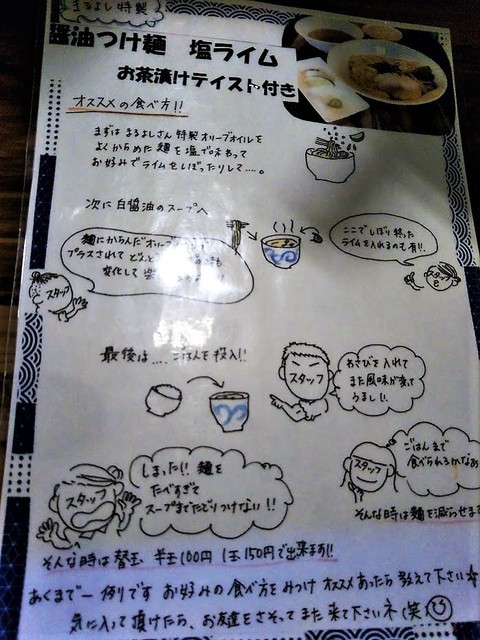 まるよし特製
醤油つけ麺 塩ライム
お茶漬けテイスト付き
オススメの食べ方!!
まずは まるよしさん 特製 オリーブオイルを
よくからめた 麺を 塩で味わって
お好みで ライムをしぼったりして....。
次に 白醤油のスープへ
麺にからんだオリーブ
プラスされて
変化して
スタッフ
ここでしぼり終った
ライムを入れるのも有!!
スタッフ
最後は.... ごはんを投入!!
スタッフ
わさびを入れて
また風味が変って
うまし!!
スタッフ
しまった!! 麺を
たべすぎて
スープまでたどりつけない!!
スタッフ
ごはんまで
食べられるかなぁ
そんな時は麺を減らせま
そんな時は 替玉 半玉100円 1玉150円で出来ます!!
あくまで一例です お好みの食べ方をみつけ オススメあったら 教えて下さい☆
気に入って頂けたら、お友達をさそって また 来て下さいネ(笑)